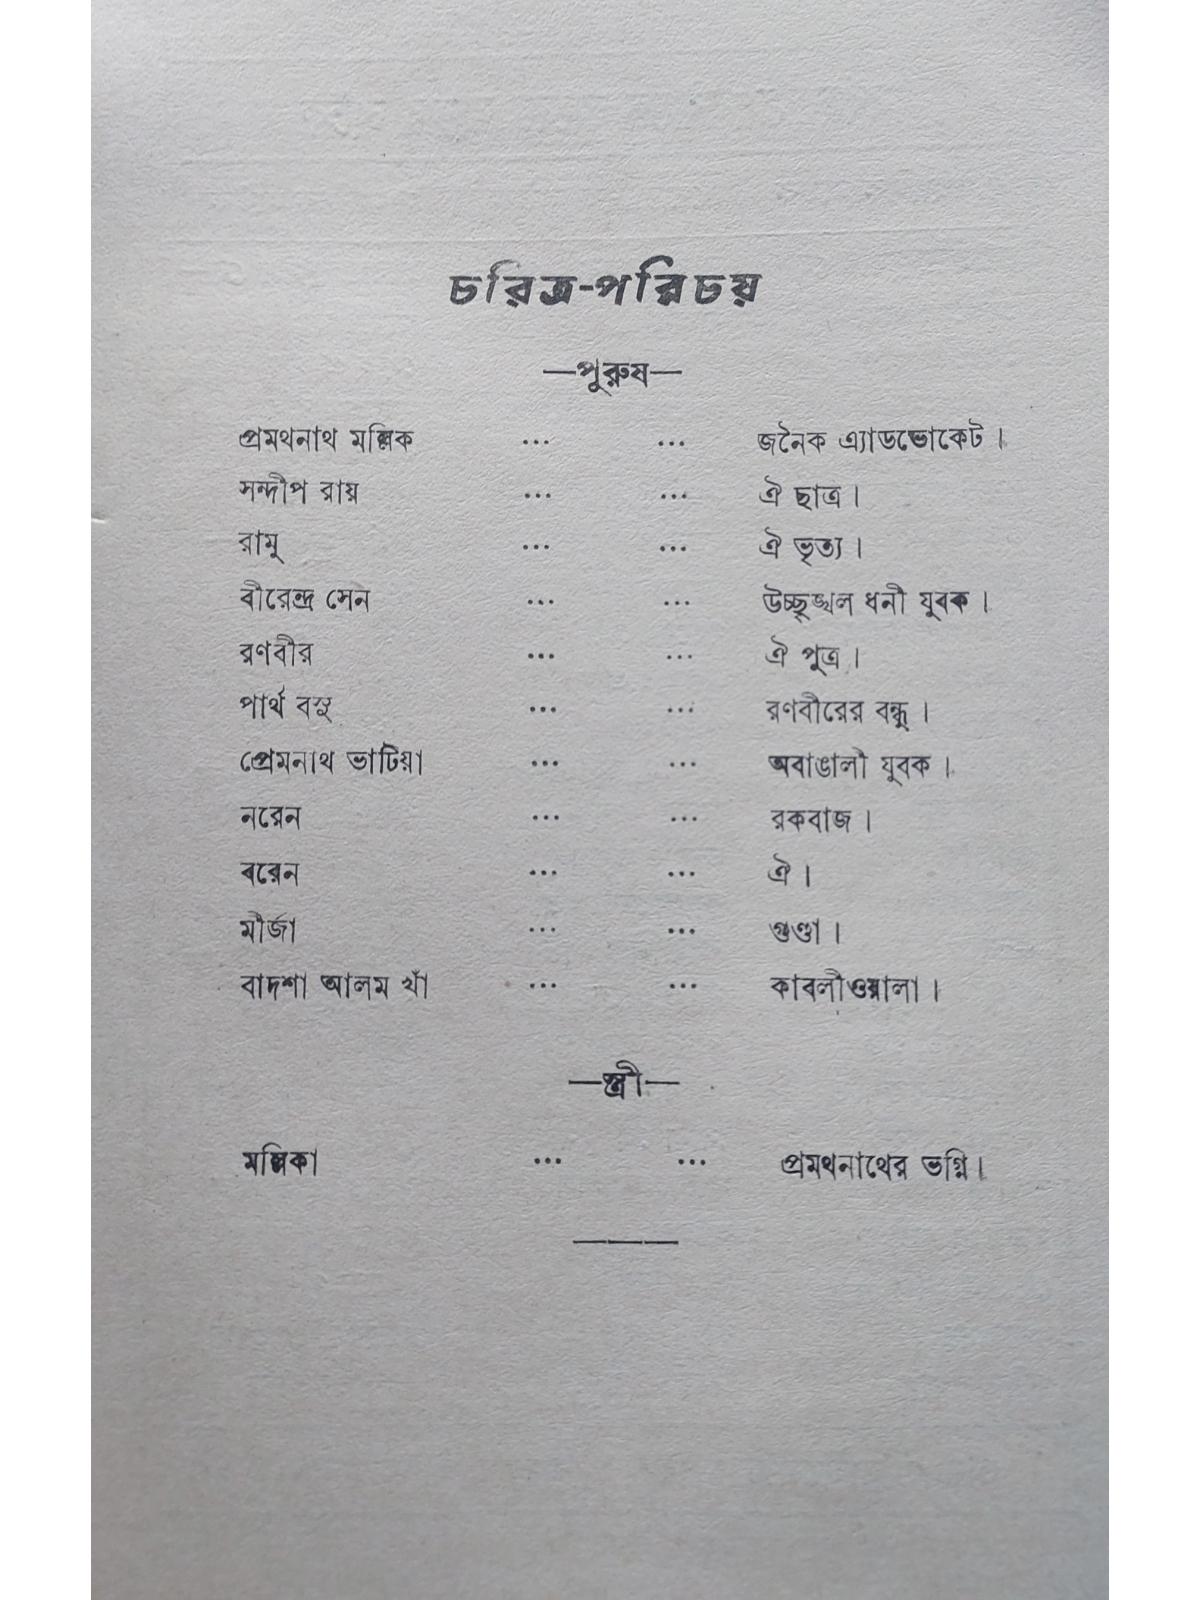 চরিত্র-পরিচয়
—পুরুষ—
প্রমথনাথ মল্লিক ... ... জনৈক এ্যাডভোকেট।
সন্দীপ রায় ... ... ঐ ছাত্র।
রামু ... ... ঐ ভৃত্য।
বীরেন্দ্র সেন ... ... উচ্ছৃঙ্খল ধনী যুবক।
রণবীর ... ... ঐ পুত্র।
পার্থ বসু ... ... রণবীরের বন্ধু।
প্রেমনাথ ভাটিয়া ... ... অবাঙালী যুবক।
নরেন ... ... রকবাজ।
বরেন ... ... ঐ।
মীর্জা ... ... গুণ্ডা।
বাদশা আলম খাঁ ... ... কাবলীওয়ালা।
—স্ত্রী—
মল্লিকা ... ... প্রমথনাথের ভগ্নি।